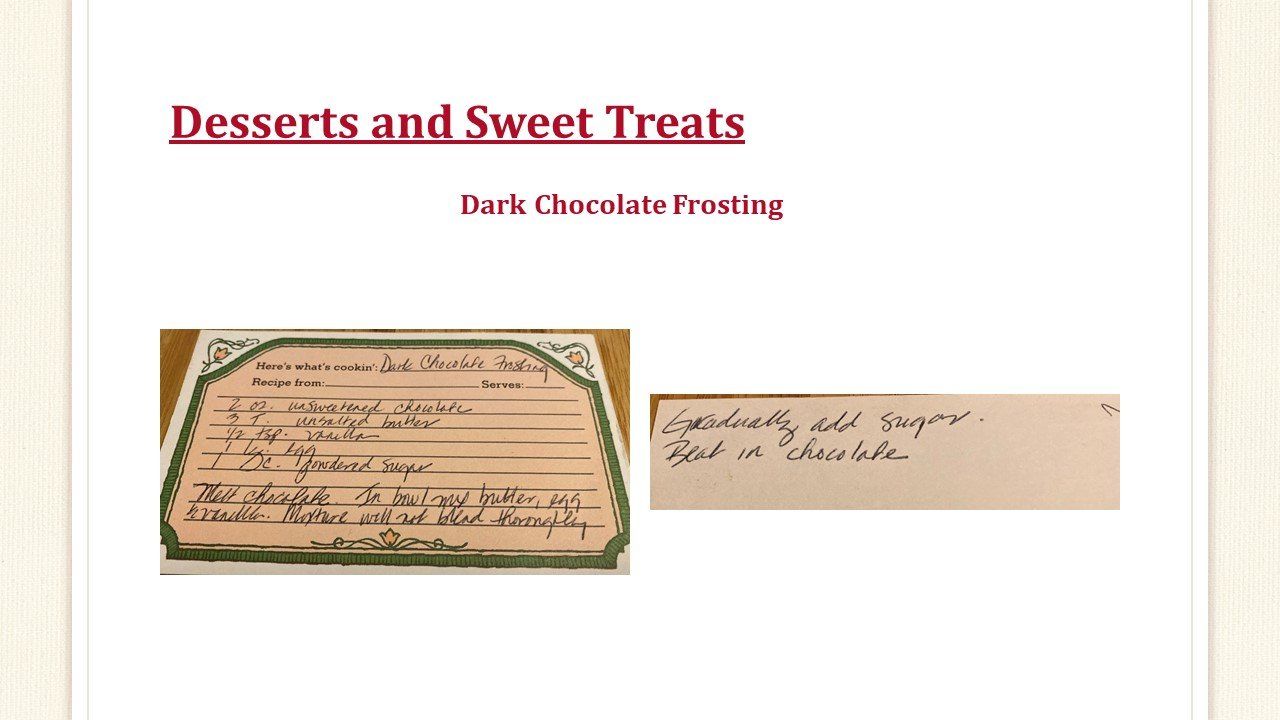 Desserts and Sweet Treats
Dark Chocolate Frosting
Here's what's cookin': Dark Chocolate Frosting
Recipe from: Serves:
2 oz. unsweetened chocolate
3 T. unsalted butter
1/2 tsp. vanilla
1 egg
1 c. powdered sugar
Melt chocolate. In bowl mix butter, egg
& vanilla. Mixture will not blend thoroughly
Gradually add sugar.
Beat in chocolate